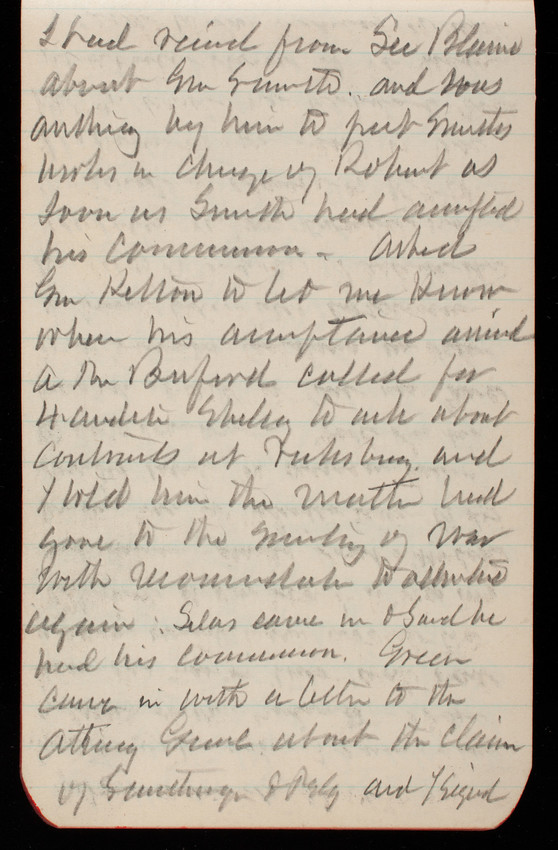 I had reicd from Sec Blaine
about Gen Smith. and was
anthing by him to put Smiths
in charge of Robert as
soon as Smith had accepted
his commission - asked
Gen Kelton to let me know
when his acceptance arrived
A Mr Buford called for
to ask about
contracts at Vicksburg and
I told him the matter had
gone to the Secrety of War
with to
again. Silas came in & said he
had his commission. Green
came in with a letter to the
Attrney Genrl about the claim
of and I signed